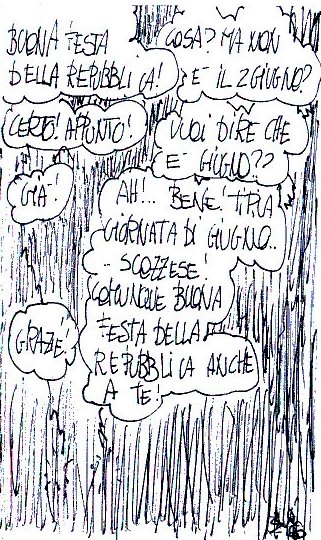 BUONA FESTA
DELLA REPUBBLICA!
COSA? MA NON
E' IL 2 GIUGNO?
CERTO! APPUNTO!
VUOI DIRE CHE
E' GIUGNO??
GIA'!
AH!... BENE! TIPICA
GIORNATA DI GIUGNO..
.. SCOZZESE!
COMUNQUE BUONA
FESTA DELLA
REPUBBLICA ANCHE
A TE!
GRAZIE!